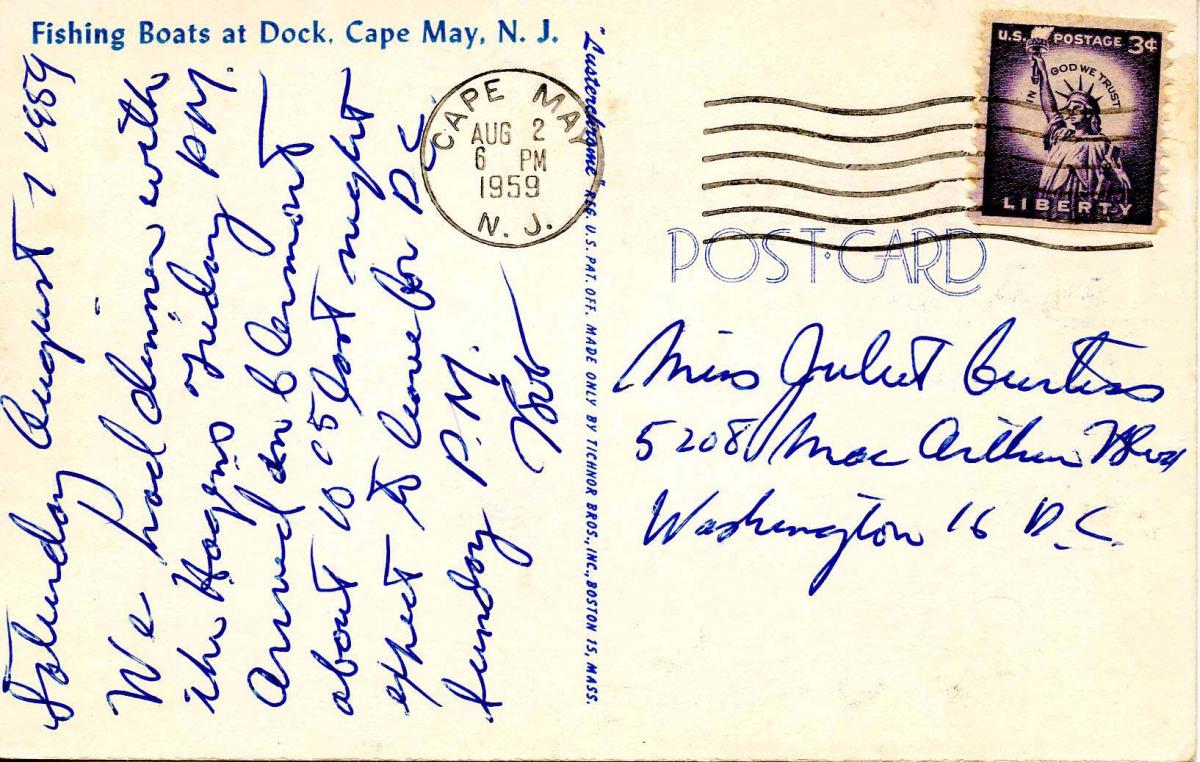 Fishing Boats at Dock, Cape May, N. J.
Saturday August 1 1959
We had dinner with
the Hagens Friday P.M.
Arrived in Clermont
about 10 05 last night
expect to leave for DC
Sunday P.M.
Bob
CAPE MAY
AUG 2
6 PM
1959
N. J.
"Lusterchrome" REG. U.S. PAT. OFF. MADE ONLY BY TICHNOR BROS., INC., BOSTON 15, MASS.
U.S. POSTAGE 3¢
IN GOD WE TRUST
LIBERTY
POST·CARD
Miss Juliet Curtiss
5208 Mac Arthur Blvd
Washington 16 D.C.